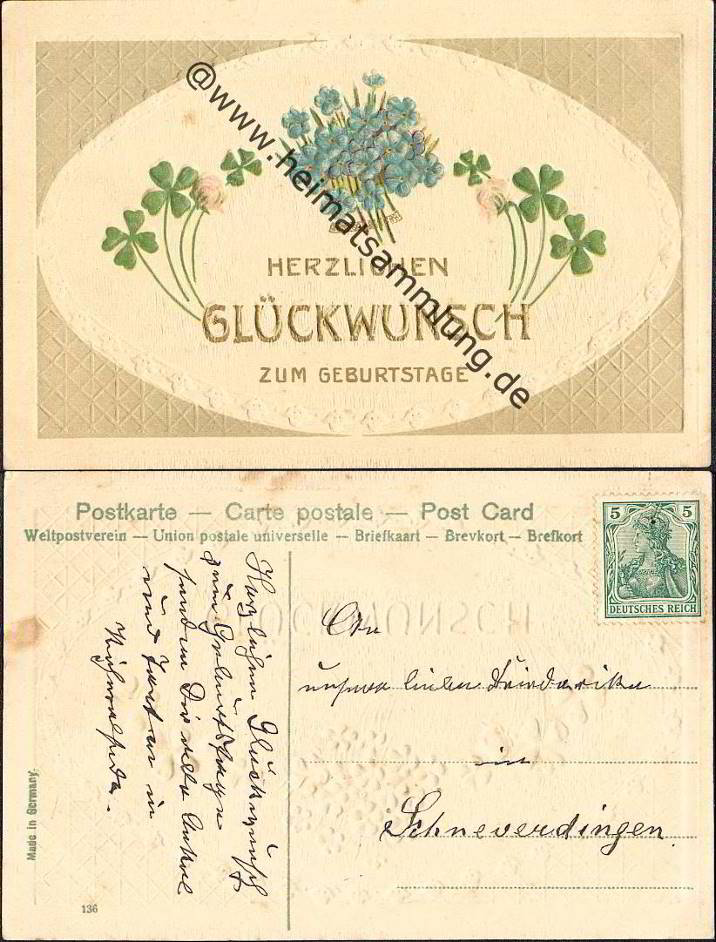 @www.heimatsammlung.de
HERZLICHEN
GLÜCKWUNSCH
ZUM GEBURTSTAGE
Postkarte — Carte postale — Post Card
Weltpostverein — Union postale universelle — Briefkaart — Brevkort — Brefkort
5 5
DEUTSCHES REICH
Herzlichen Glückwunsch
zum Geburtstage
senden Dir viele
und in
An
unsere lieben
in
Schneverdingen
Made in Germany.
136